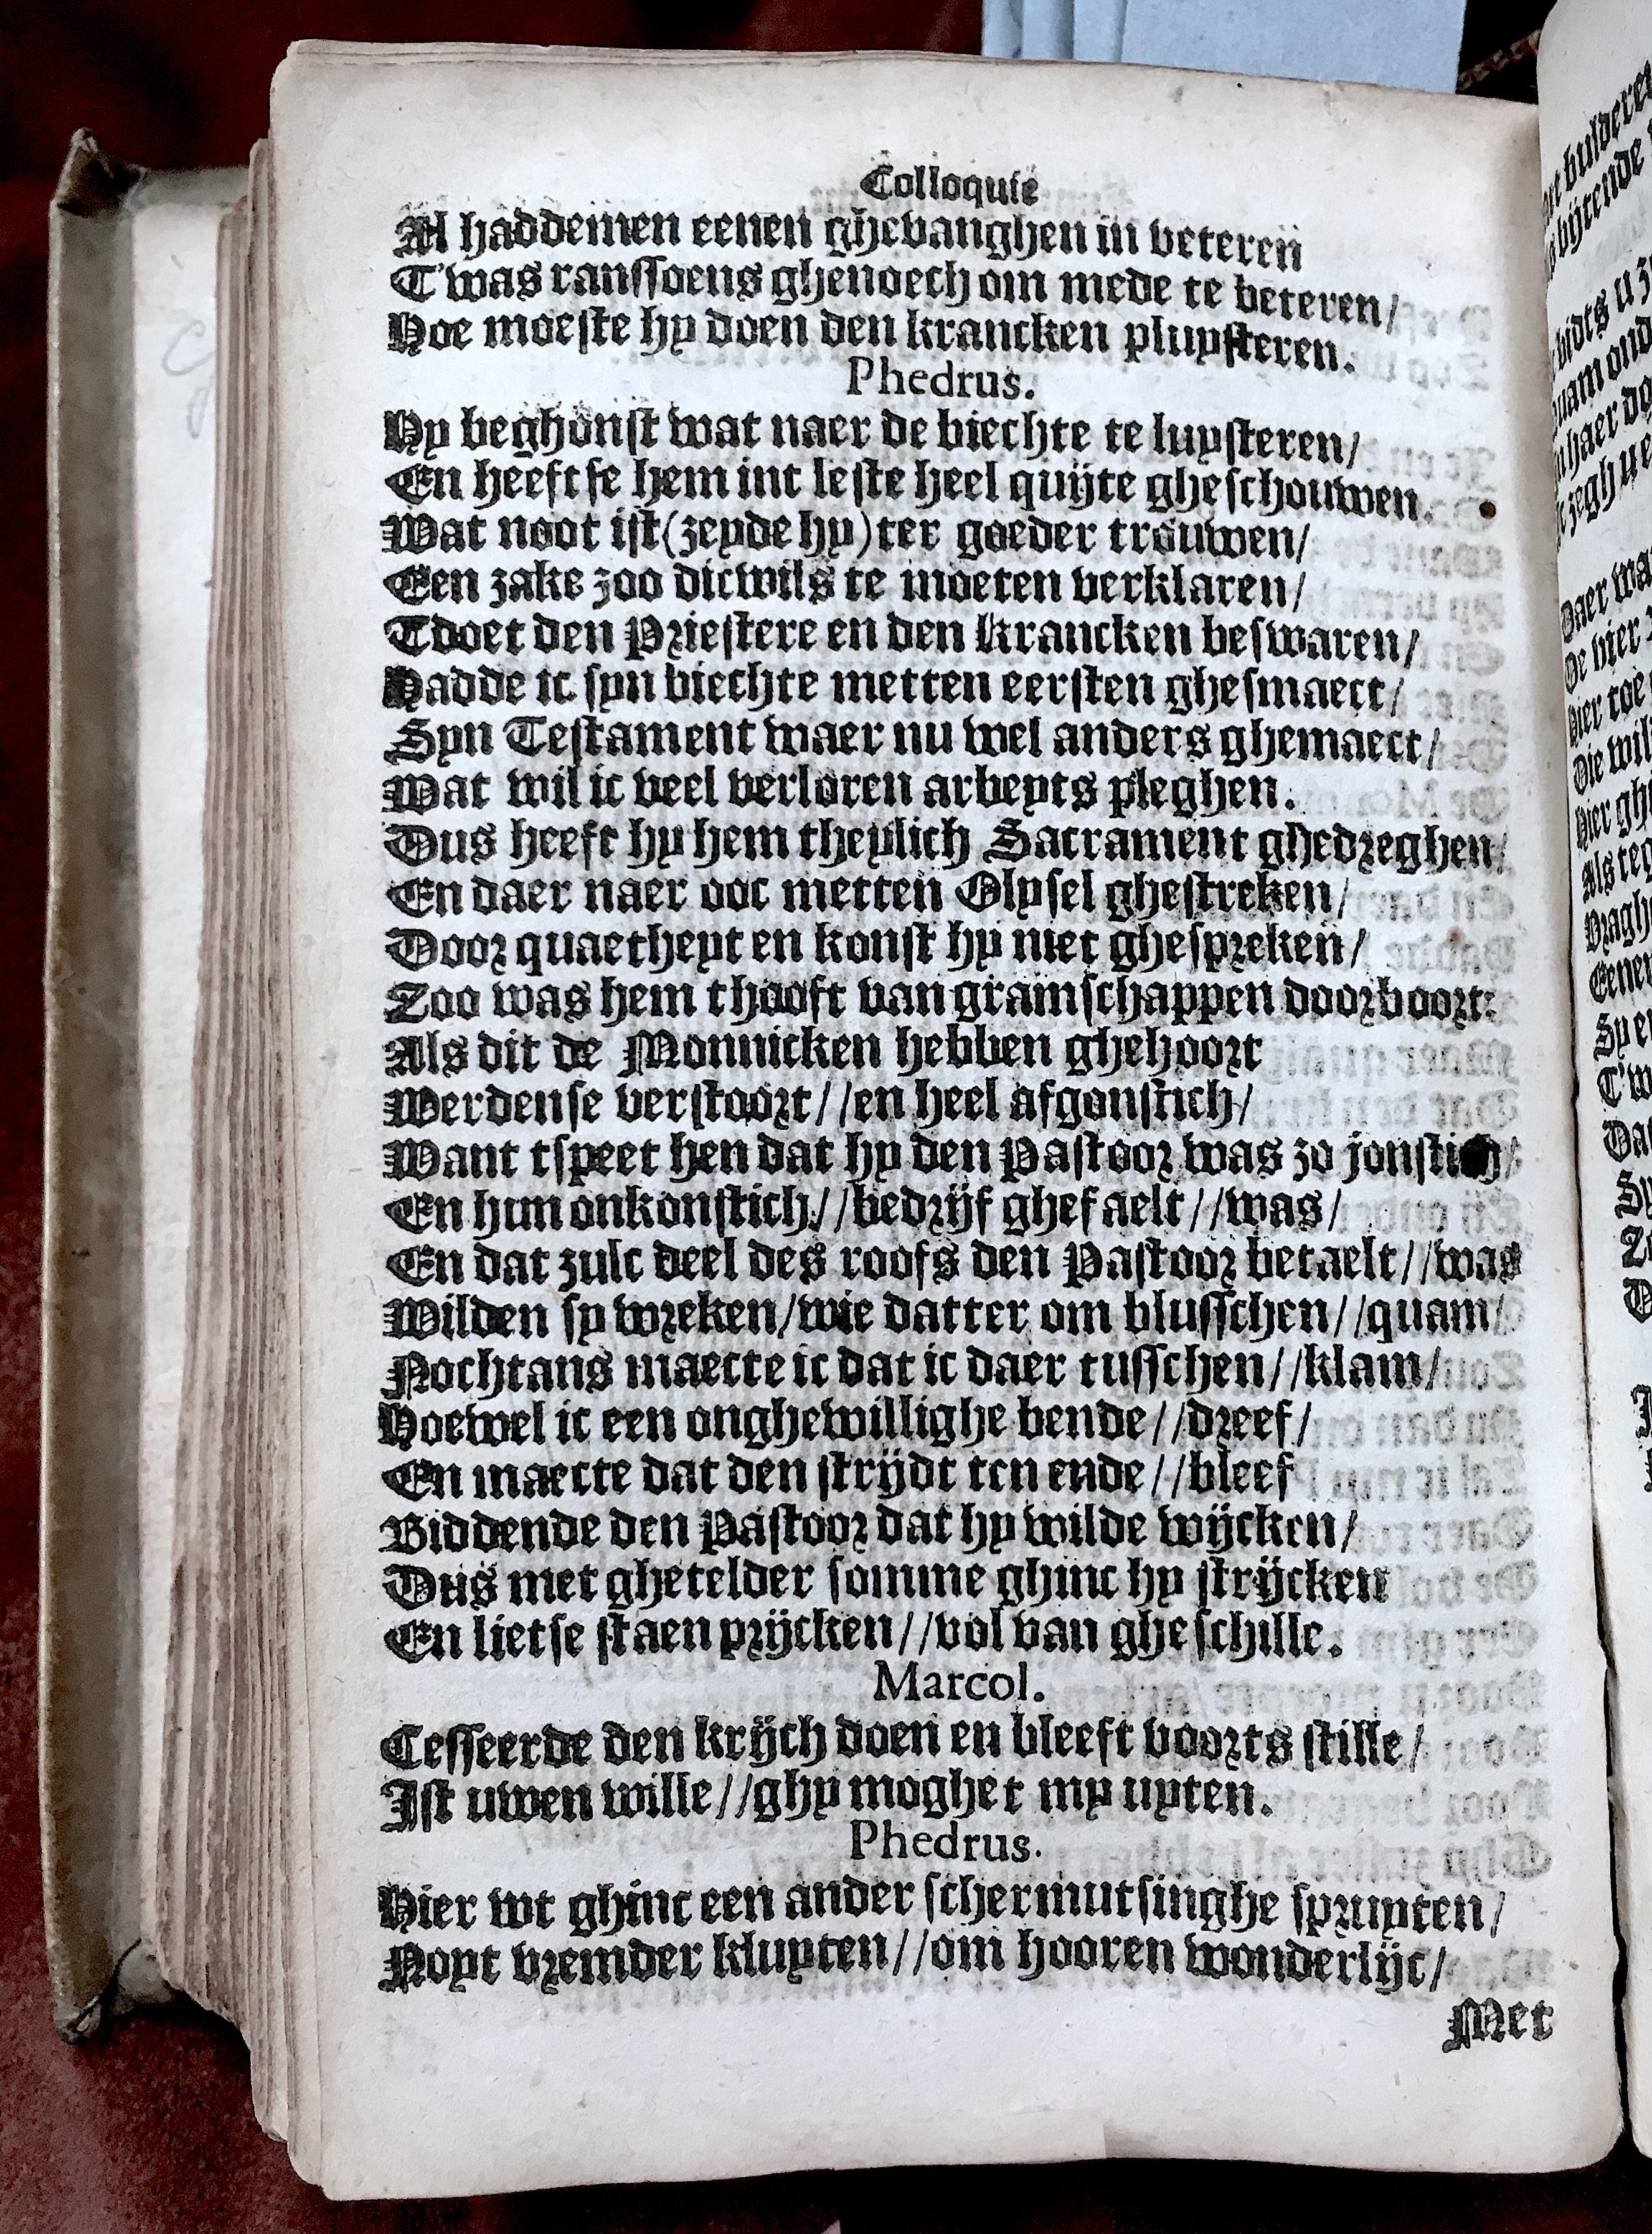 Colloquie
Al haddemen eenen ghevanghen in veteren
T'was ranssoens ghenoech om mede te beteren/
Hoe moeste hy doen den krancken pluysteren.
Phedrus.
Hy beghonst wat naer de biechte te luysteren/
En heeftse hem int leste heel quijte ghescholuwen.
Wat noot ist (zeyde hy) ter goeder trouwen/
Een zake zoo dicwils te moeten verklaren/
Tdoet den Priestere en den Krancken beswaren/
Hadde ic syn biechte metten eersten ghesmaect/
Syn Testament waer nu wel anders ghemaect/
Wat wil ic veel verloren arbeyts pleghen.
Dus heeft hy hem theylich Sacrament ghedreghen/
En daer naer ooc metten Olysel ghestreken/
Door quaetheyt en konst hy niet ghespreken/
Zoo was hem thooft van gramschappen doorboort:
Als dit de Monnicken hebben ghehoort
Werdense verstoort//en heel afgonstich/
Want tspeet hen dat hy den Pastoor was zo jonstich/
En hun onkonstich//bedrijf ghefaelt//was/
En dat zulc deel des roofs den Pastoor betaelt//was
Wilden sy wreken/wie datter om blusschen//quam/
Nochtans maecte ic dat ic daer tusschen//klam/
Hoewel ic een onghewillighe bende//dreef/
En maecte dat den strijdt ten ende//bleef
Biddende den Pastoor dat hy wilde wijcken/
Dus met ghetelder somme ghinc hy strijcken
En lietse staen prijcken//vol van gheschille.
Marcol.
Cesseerde den krijch doen en bleeft voorts stille/
Ist uwen wille//ghy moghet my uyten.
Phedrus.
Hier wt ghinc een ander schermutsinghe spruyten/
Noyt vremder kluyten//om hooren wonderlijc/
Met